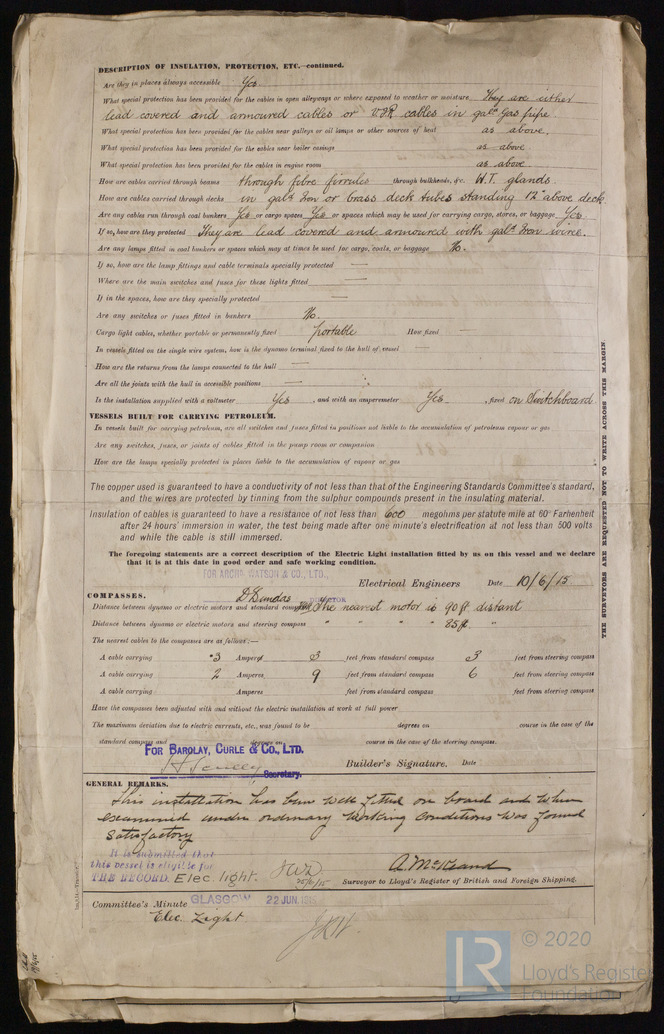 DESCRIPTION OF INSULATION, PROTECTION, ETC.—continued.
Are they in places always accessible Yes
What special protection has been provided for the cables in open alleyways or where exposed to weather or moisture They are either
lead covered and armoured cables or V.I.R cables in galvn Gas pipe
What special protection has been provided for the cables near galleys or oil lamps or other sources of heat as above.
What special protection has been provided for the cables near boiler casings as above
What special protection has been provided for the cables in engine room as above
How are cables carried through beams through fibre firrules through bulkheads, &c. W.T. glands.
How are cables carried through decks in galvd Iron or brass deck tubes standing 12" above deck.
Are any cables run through coal bunkers Yes or cargo spaces Yes or spaces which may be used for carrying cargo, stores, or baggage Yes.
If so, how are they protected They are lead covered and armoured with galvd Iron wire.
Are any lamps fitted in coal bunkers or spaces which may at times be used for cargo, coals, or baggage No.
If so, how are the lamp fittings and cable terminals specially protected —
Where are the main switches and fuses for these lights fitted —
If in the spaces, how are they specially protected —
Are any switches or fuses fitted in bunkers No.
Cargo light cables, whether portable or permanently fixed portable How fixed —
In vessels fitted on the single wire system, how is the dynamo terminal fixed to the hull of vessel —
How are the returns from the lamps connected to the hull —
Are all the joints with the hull in accessible positions —
Is the installation supplied with a voltmeter Yes , and with an amperemeter Yes , fixed on Switchboard
VESSELS BUILT FOR CARRYING PETROLEUM.
In vessels built for carrying petroleum, are all switches and fuses fitted in positions not liable to the accumulation of petroleum vapour or gas
Are any switches, fuses, or joints of cables fitted in the pump room or companion
How are the lamps specially protected in places liable to the accumulation of vapour or gas
The copper used is guaranteed to have a conductivity of not less than that of the Engineering Standards Committee's standard,
and the wires are protected by tinning from the sulphur compounds present in the insulating material.
Insulation of cables is guaranteed to have a resistance of not less than 600 megohms per statute mile at 60° Farhenheit
after 24 hours' immersion in water, the test being made after one minute's electrification at not less than 500 volts
and while the cable is still immersed.
The foregoing statements are a correct description of the Electric Light installation fitted by us on this vessel and we declare
that it is at this date in good order and safe working condition.
FOR ARCHD WATSON & CO., LTD.,
Electrical Engineers Date 10/6/15
D Dundas DIRECTOR
COMPASSES.
Distance between dynamo or electric motors and standard compass The nearest motor is 90 ft distant
Distance between dynamo or electric motors and steering compass " " " 85 ft. "
The nearest cables to the compasses are as follows:—
A cable carrying .3 Amperes 3 feet from standard compass 3 feet from steering compass
A cable carrying 2 Amperes 9 feet from standard compass 6 feet from steering compass
A cable carrying Amperes feet from standard compass feet from steering compass
Have the compasses been adjusted with and without the electric installation at work at full power
The maximum deviation due to electric currents, etc., was found to be degrees on course in the case of the
standard compass and degrees on course in the case of the steering compass.
FOR BARCLAY, CURLE & CO., LTD.
Secretary.
Builder's Signature. Date
GENERAL REMARKS.
This installation has been well fitted on board and when
examined under ordinary working conditions was found
satisfactory
It is submitted that
this vessel is eligible for
THE RECORD. Elec. light. JWD 25/6/15
A. McKeand
Surveyor to Lloyd's Register of British and Foreign Shipping.
Committee's Minute GLASGOW 22 JUN. 1915
Elec. Light
THE SURVEYORS ARE REQUESTED NOT TO WRITE ACROSS THIS MARGIN.
LR © 2020
Lloyd's Register
Foundation